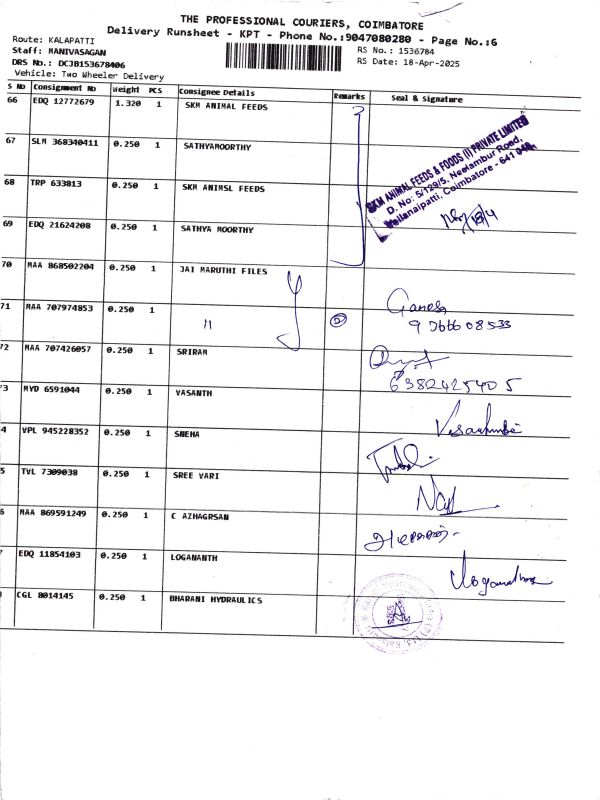 THE PROFESSIONAL COURIERS, COIMBATORE
Delivery Runsheet - KPT - Phone No.:9047080280 - Page No.:6
Route: KALAPATTI
Staff: MANIVASAGAN
DRS No.: DCJB153678406
Vehicle: Two Wheeler Delivery
RS No.: 1536784
RS Date: 18-Apr-2025
S No Consignment No Weight PCS Consignee Details Remarks Seal & Signature
66 EDQ 12772679 1.320 1 SKM ANIMAL FEEDS
67 SLM 368340411 0.250 1 SATHYAMOORTHY
SKM ANIMAL FEEDS & FOODS (I) PRIVATE LIMITED
D. No: 5/129/5, Neelambur Road,
Coimbatore - 641
68 TRP 633813 0.250 1 SKM ANIMSL FEEDS
18/4
69 EDQ 21624208 0.250 1 SATHYA MOORTHY
70 MAA 868502204 0.250 1 JAI MARUTHI FILES
71 MAA 707974853 0.250 1 " 2 Ganesh
72 MAA 707426057 0.250 1 SRIRAM
6382425405
3 MYD 6591044 0.250 1 VASANTH
4 VPL 945228352 0.250 1 SNEHA
5 TVL 7309038 0.250 1 SREE VARI
6 MAA 869591249 0.250 1 C AZHAGRSAN
EDQ 11854103 0.250 1 LOGANANTH
CGL 8014145 0.250 1 BHARANI HYDRAULICS